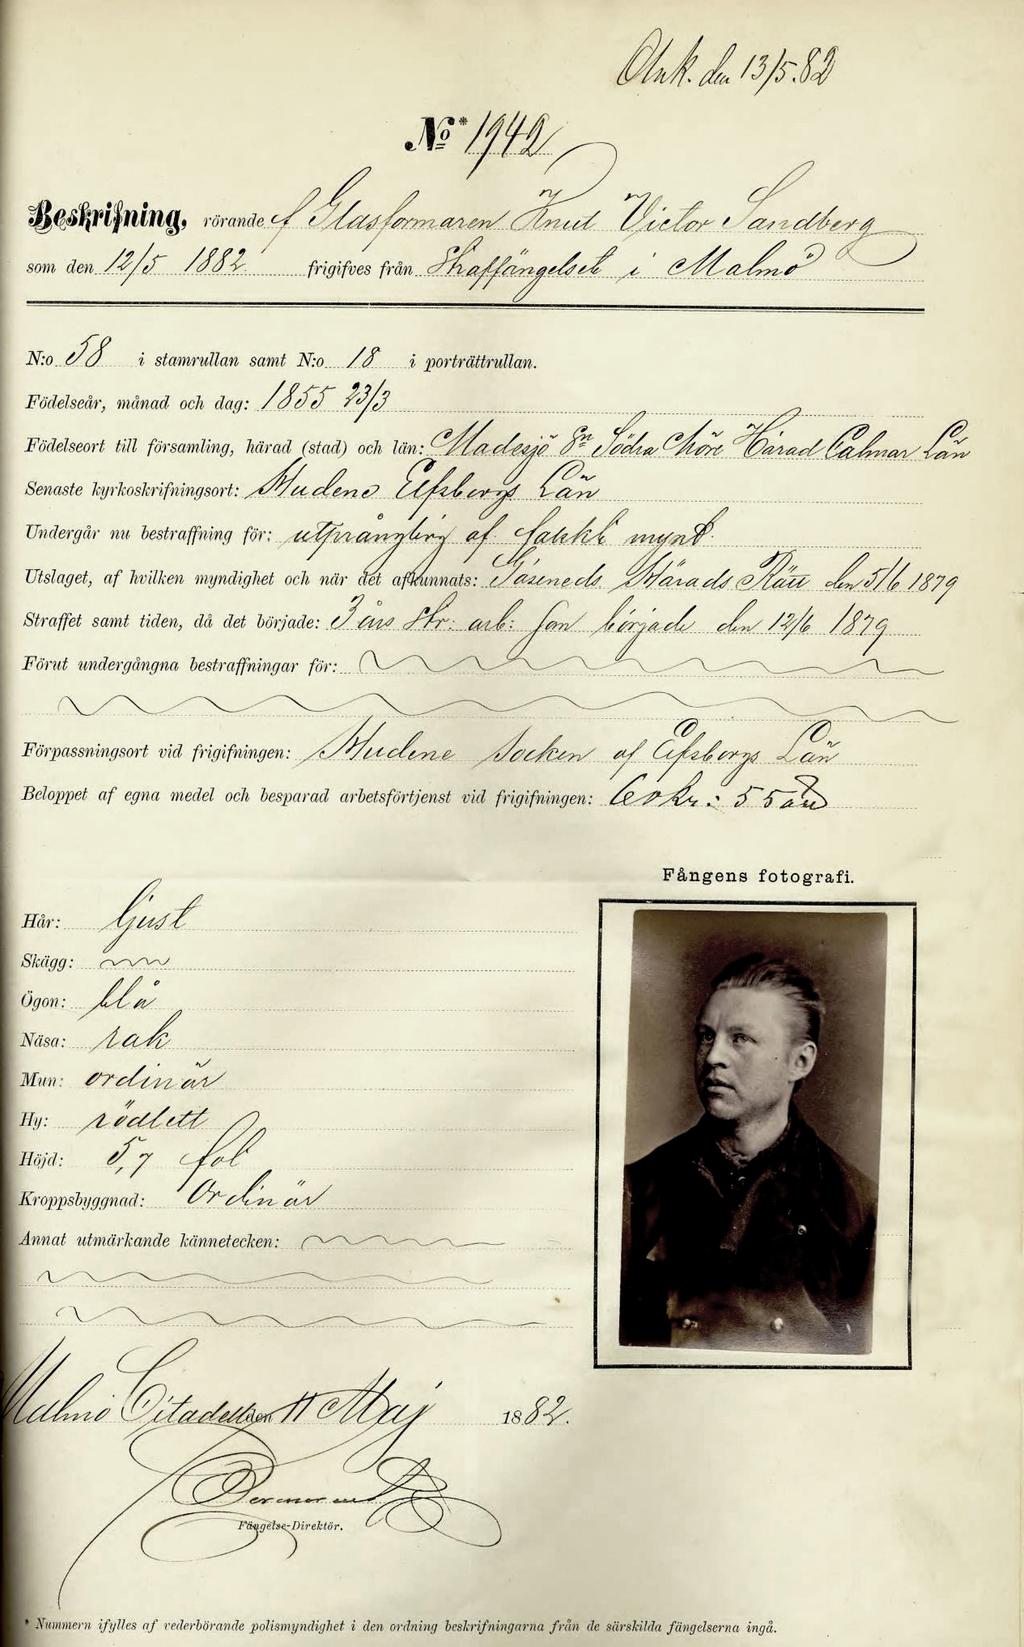 Ank. den 13/5.82
No* 1942
Beskrifning, rörande f Glasformaren Knut Victor Sandberg
som den 12/5 1882 frigifves från Straffängelset i Malmö
N:o 58 i stamrullan samt N:o 18 i porträttrullan.
Födelseår, månad och dag: 1855 23/3
Födelseort till församling, härad (stad) och län: Madesjö Sn Södra Möre Härad Calmar Län
Senaste kyrkoskrifningsort: Hudene Elfsborgs Län
Undergår nu bestraffning för: utprångling af falskt mynt.
Utslaget, af hvilken myndighet och när det afkunnats: Gäseneds Härads Rätt den 5/6 1879
Straffet samt tiden, då det började: 3 års Str: arb: som började den 12/6 1879
Förut undergångna bestraffningar för:
Förpassningsort vid frigifningen: Hudene Socken af Elfsborgs Län
Beloppet af egna medel och besparad arbetsförtjenst vid frigifningen: 60 Kr: 55 öre
Fångens fotografi.
Hår: ljust
Skägg:
Ögon: blå
Näsa: rak
Mun: ordinär
Hy: rödlett
Höjd: 5,7 fot
Kroppsbyggnad: Ordinär
Annat utmärkande kännetecken:
Malmö Citadell den 11 Maj 1882.
Fängelse-Direktör.
* Nummern ifylles af vederbörande polismyndighet i den ordning beskrifningarna från de särskilda fängelserna ingå.